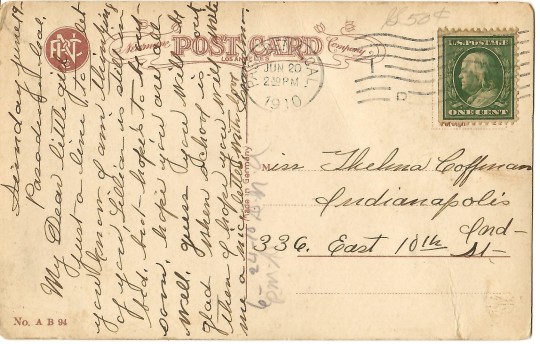 Sunday June 19
Pasadena Cal.
My Dear little girl
Just a line to let
you know I am thinking
of you. Lillian is still in
bed, but hope to be out
soon, hope you are all
well. guess you will be
glad when school is out
then I hope you will write
me a nice letter with love
Grandma.
Newman
POST CARD
Company
LOS ANGELES
PASADENA, CAL.
JUN 20
2 30 PM
1910
50¢
U.S. POSTAGE
ONE CENT
Made in Germany
Miss Thelma Coffman
Indianapolis
Ind-
336. East 10th St-
No. A B 94